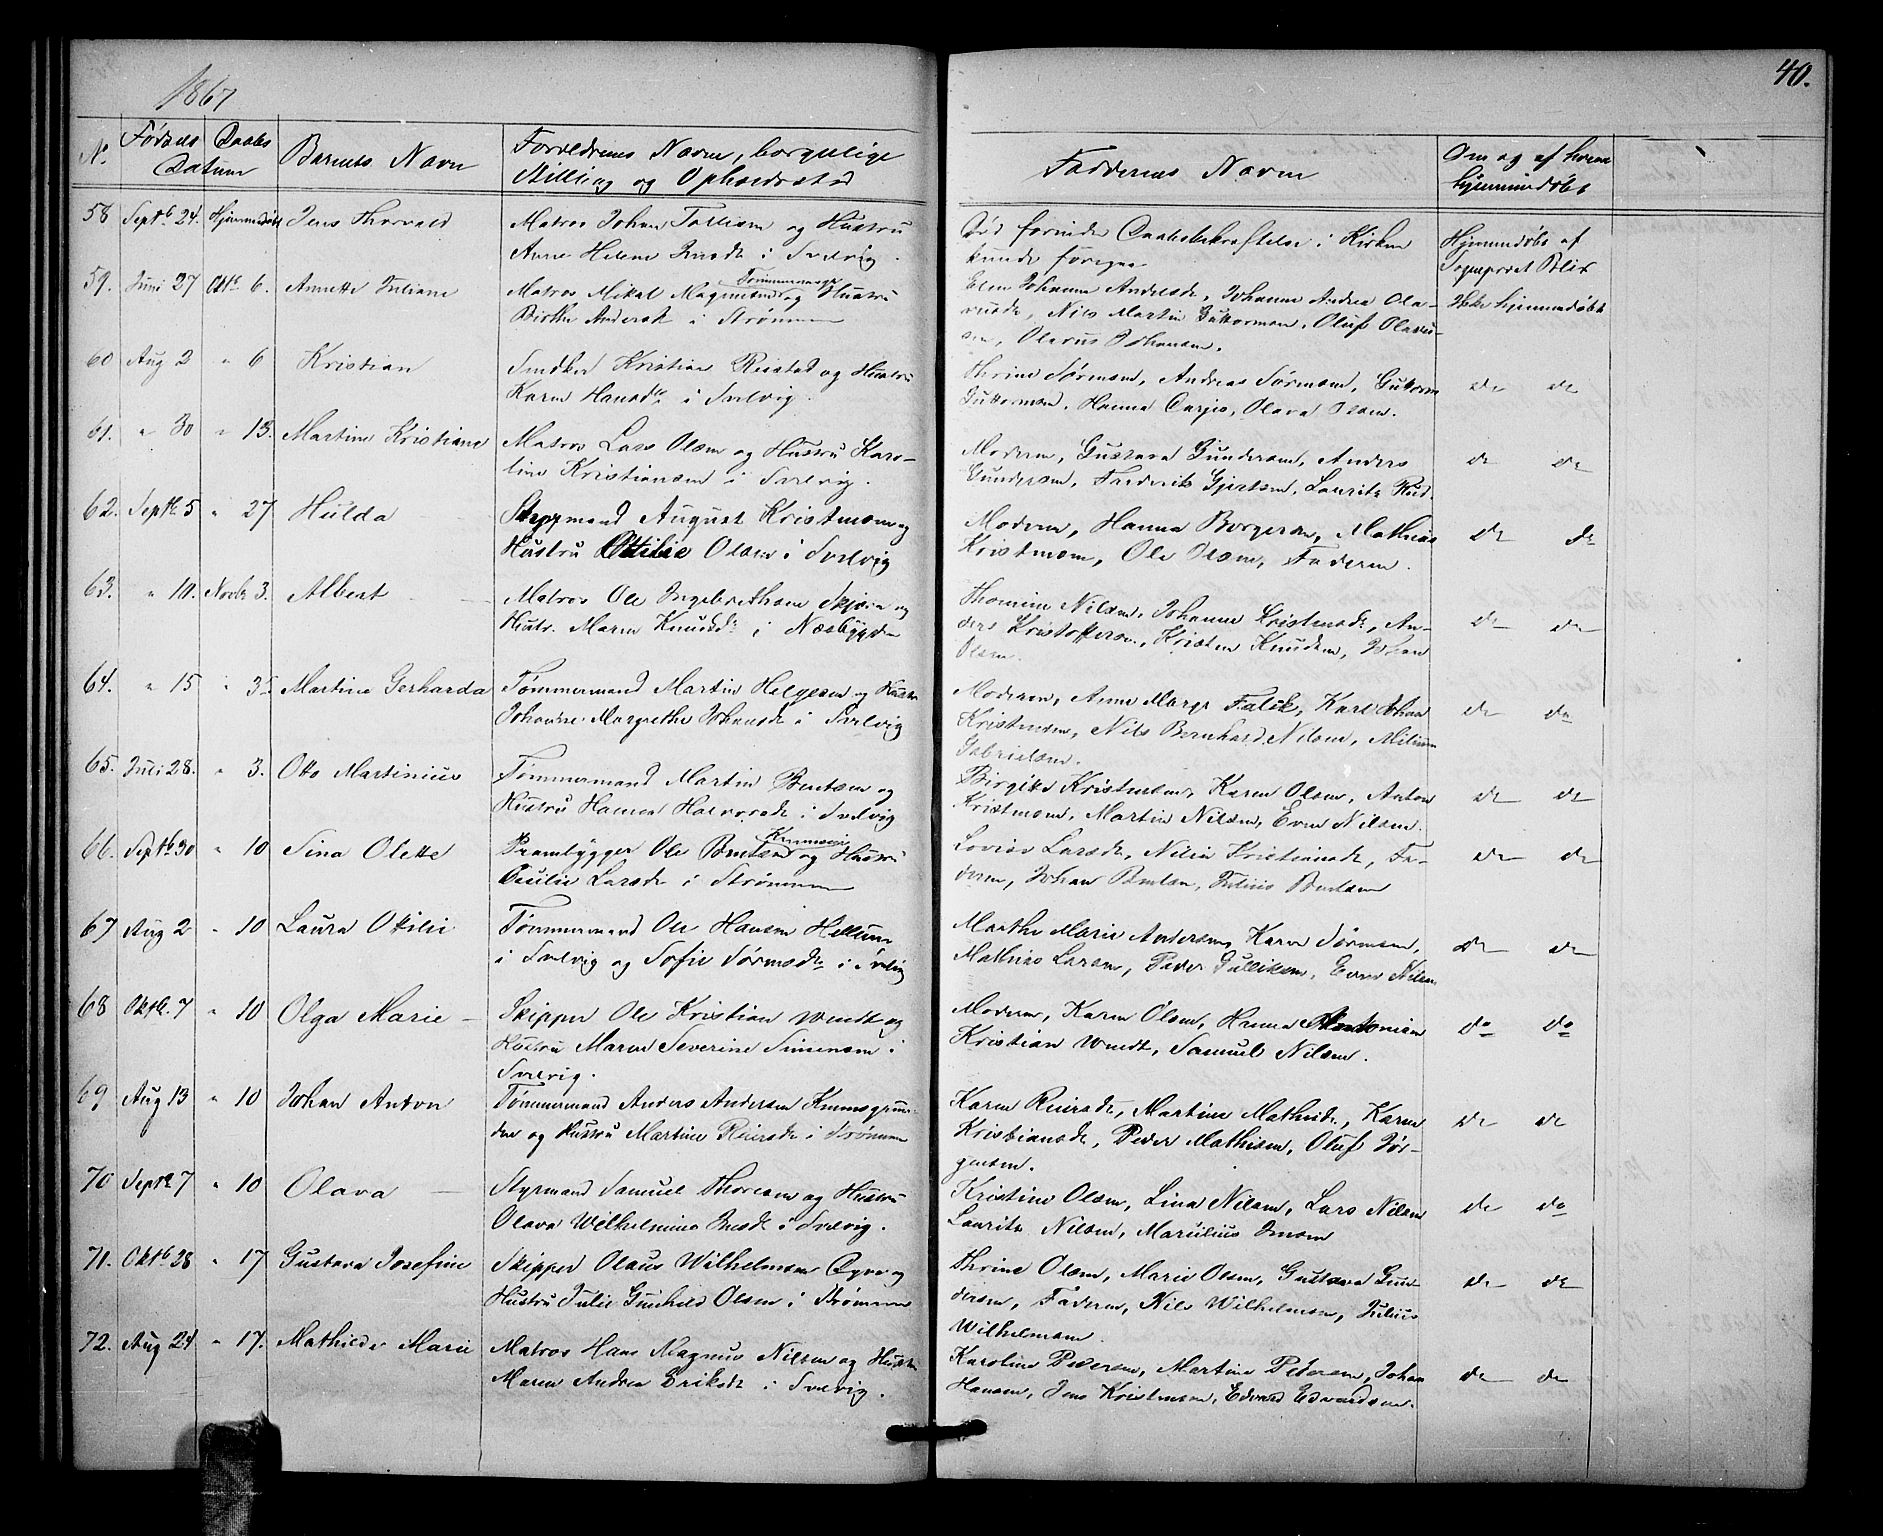 1867
40.
No. Fødsels Datum Daabs Datum Barnets Navn Forældrenes Navne, borgerlige
Stilling og Opholdssted Faddernes Navne Om og af hvem
hjemmedøbt
58 Septb. 24. Hjemmedøbt Jens Thorvald Matros Johan Tollisen og Hustru
Anne Helene Jensdt. i Svelvig.
Død forinden Daabsbekræftelse i Kirken
kunde foregaa
Hjemmedøbt af
59. Juni 27 Oktbr. 6. Annette Juliane Matros Mikal Magnusen og Hustru
Birthe Andersdt. i Strømmen
Elen Johanne Andersdt., Johanne Andrea Ola-
vusdt., Nils Martin Guttormsen, Oluf Olavus-
sen, Olavus Johansen.
Ikke hjemmedøbt
60 Aug 2 " 6 Kristian Snedker Kristian Reistad og Hustru
Karen Hansdtr. i Svelvig.
Thrine Sørensen, Andreas Sørensen, Guttorm
Guttormsen, Hanna Carjis, Olava Olsen.
do do
61. " 30 " 13. Martine Kristiane Matros Lars Olsen og Hustru Karo-
line Kristiansen i Svelvig.
Moderen, Gustava Gundersen, Anders
Gundersen, Frederik Gjertsen, Lauritz
do do
62. Septb. 5 " 27 Hulda Styrmand August Kristensen og
Hustru Ottilie Olsen i Svelvig
Moderen, Hanna Borgersen, Mathias
Kristensen, Ole Olsen, Faderen.
do do
63. " 10. Novbr 3. Albert Matros Ole Ingebrethsen Skjærn og
Hustr. Maren Knudsdtr. i Næsbygden
Thomine Nilsen, Johanne Kristensdt., An-
ders Kristoffersen, Kristen Knudsen, Johan
Olsen.
do do
64. " 15 " 3 Martine Gerharda Tømmermand Martin Helgesen og Hustru
Johanne Margrethe Johansdt. i Svelvig
Moderen, Anne Marge Falck, Karl Johan
Kristensen, Nils Bernhard Nilsen,
Gabrielsen.
do do
65. Juli 28. " 3. Otto Martinius Tømmermand Martin Bentsen og
Hustru Hanna Halvorsdt. i Svelvig
Birgitte Kristensen, Karen Olsen, Anton
Kristensen, Martin Nilsen, Even Nilsen.
do do
66. Septb. 30 " 10 Sina Olette Prambygger Ole Bentsen og Hustru
Cecilie Larsdt. i Strømmen
Lovise Larsdt., Nilia Kristiansdt., Fa-
deren, Johan Bentsen, Julius Bentsen
do do
67 Aug 2 " 10 Laura Otilie Tømmermand Ole Hansen Hellum
i Svelvig og Sofie Sørensdtr. i Svelvig
Marthe Marie Andersen, Karen Sørensen,
Mathias Larsen, Peder Gulliksen, Even Nilsen
do do
68 Oktb. 7 " 10 Olga Marie Skipper Ole Kristian Wendt og
Hustru Maren Severine Simensen i
Svelvig.
Moderen, Karen Olsen, Hanna Antonisen
Kristian Wendt, Samuel Nilsen.
do do
69 Aug 13 " 10 Johan Anton Tømmermand Anders Andersen Knemsgrun-
den og Hustru Martine Reiersdt. i Strømmen
Karen Reiersdt., Martine Mathisdt., Karen
Kristiansdt., Peder Mathisen, Oluf Jør-
gensen.
do do
70 Septb. 7 " 10 Olava Styrmand Samuel Thoresen og Hustru
Olava Wilhelmine Jensdt. i Svelvig.
Kristine Olsen, Lina Nilsen, Lars Nilsen
Lauritz Nilsen, Marulius Jensen
do do
71. Oktb. 28 " 17 Gustava Josefine Skipper Olaus Wilhelmsen Øgve og
Hustru Julie Gunhild Olsen i Strømmen
Thrine Olsen, Marie Olsen, Gustava Gun-
dersen, Faderen, Nils Wilhelmsen, Julius
Wilhelmsen.
do do
72. Aug 24 " 17. Mathilde Marie Matros Hans Magnus Nilsen og Hustru
Maren Andrea Eriksdt. i Svelvig.
Karoline Pedersen, Martine Pedersen, Johan
Hansen, Jens Kristensen, Edvard Edvardsen.
do do